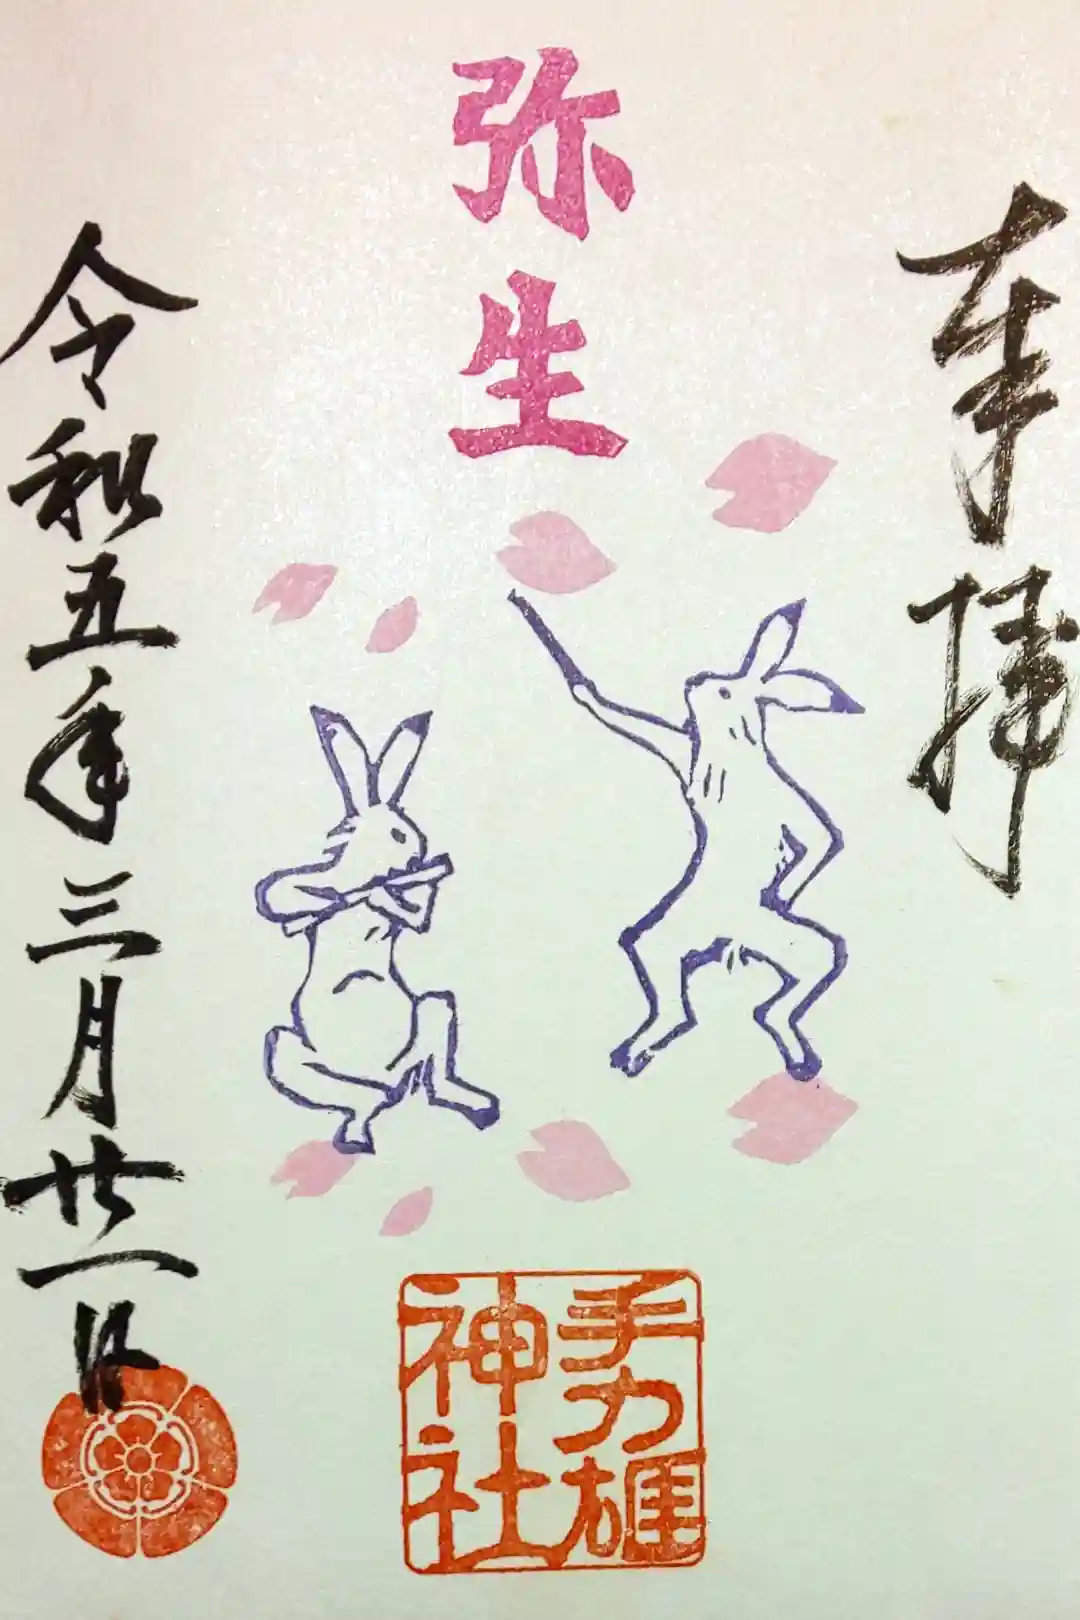 奉拝
弥生
手力雄
神社
令和五年三月廿一日